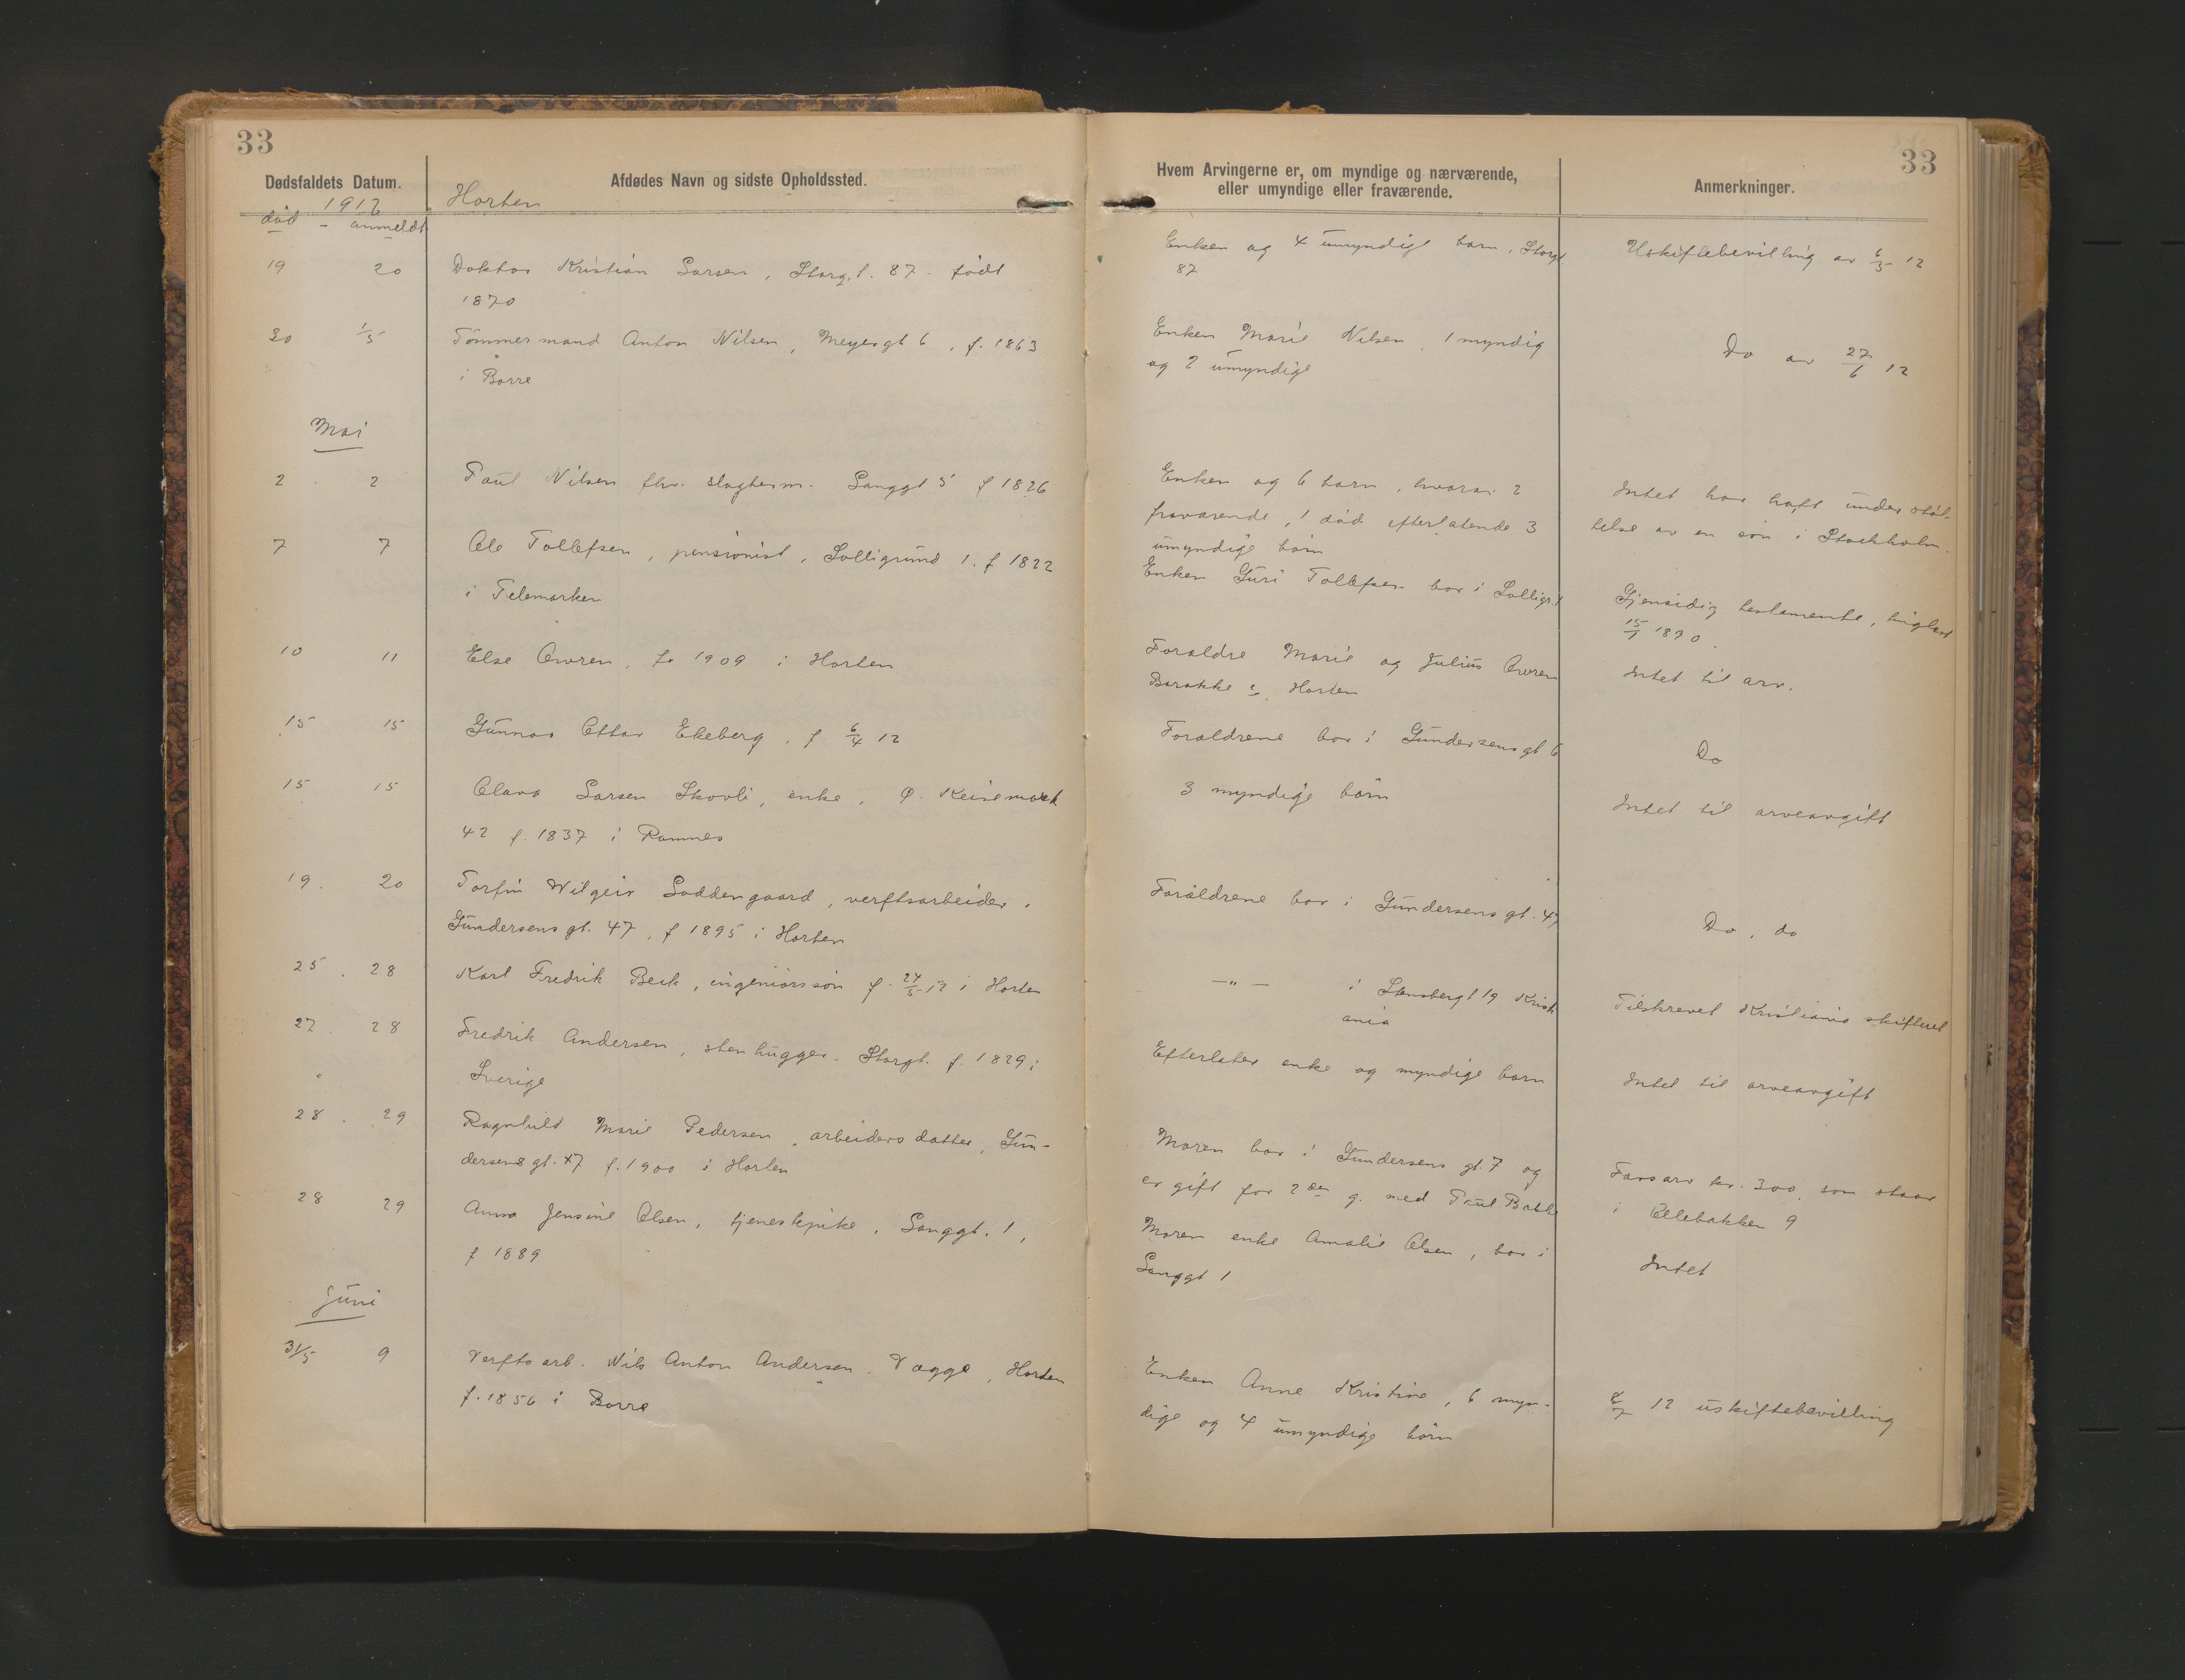 33
33
Dødsfaldets Datum.
Afdødes Navn og sidste Opholdssted.
Hvem Arvingerne er, om myndige og nærværende,
eller umyndige eller fraværende.
Anmerkninger.
1912
død - anmeldt
Horten
19 20 Doktor Kristian Larsen, Storgt. 87. født
1870
Enken og 4 umyndige barn, Storgt
87
Uskiftebevilling av 6/5 12
30 1/5 Tømmermand Anton Nilsen, Meyersgt 6, f. 1863
i Borre
Enken Marie Nilsen, 1 myndig
og 2 umyndige
Do av 27/6 12
Mai
2 2 Paul Nilsen fhv. slagterm. Langgt 5 f 1826
Enken og 6 barn, hvorav 2
fraværende, 1 død efterlatende 3
umyndige børn
Intet har haft understøt-
telse av en søn i Stockholm.
7 7 Ole Tollefsen, pensionist, Solligrund 1. f 1822
i Telemarken
Enken Guri Tollefsen bor i Solligr. 1
Gjensidig testamente, tinglæst
15/1 1890.
10 11 Else Owren, f. 1909 i Horten
Forældre Marie og Julius Owren
Barakke Horten
Intet til arv.
15 15 Gunnar Ottar Ekeberg, f. 6/4 12
Forældrene bor i Gundersensgt 6
Do
15 15 Olava Larsen Skovli, enke, Ø. Keisemark
42 f. 1837 i Ramnes
3 myndige børn
Intet til arveavgift
19. 20 Torfin Wilgeir Loddengaard, verftsarbeider,
Gundersensgt. 47, f 1895 i Horten
Forældrene bor i Gundersensgt. 47
Do, do
25. 28 Karl Fredrik Beck, ingeniørssøn f. 24/5 12 i Horten
—"— i Stensbergt 19 Kristi
ania
Tilskrevet Kristiania skifteret
27 28 Fredrik Andersen, stenhugger. Storgt. f. 1829 i
Sverige
Efterlater enke og myndige barn
Intet til arveavgift
28. 29 Ragnhild Marie Pedersen, arbeidersdatter, Gun-
dersensgt. 7 f. 1900 i Horten
Moren bor i Gundersens gt. 7 og
er gift for 2den g. med Paul
Farsarv kr. 300, som staar
i Ollebakken 9
28 29 Anna Jensine Olsen, tjenestepike, Langgt. 1,
f 1889
Moren enke Amalie Olsen, bor i
Langgt 1
Intet
Juni
31/5 9 Verftsarb. Nils Anton Andersen. Vægge, Horten
f. 1856 i Borre
Enken Anne Kristine, 6 myn-
dige og 4 umyndige børn
8/7 12 uskiftebevilling